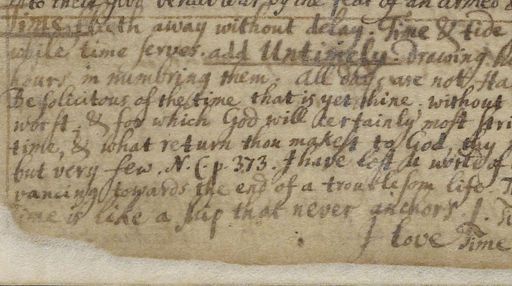 to their give behaviour, by the fear of an armed
Time flieth away without delay. Time & tide
while time serves. add Untimely. Drawing
hours, in numbring them. All days are not Ha
Be solicitous of the time that is yet thine. without
worst, & for which God will certainly most stri
time, & what return thou makest to God, thy
but very few. N. C p. 373. I have left a world of
vancing towards the end of a troublesom life. T
time is like a ship that never anchors. J. Ti
I love Time